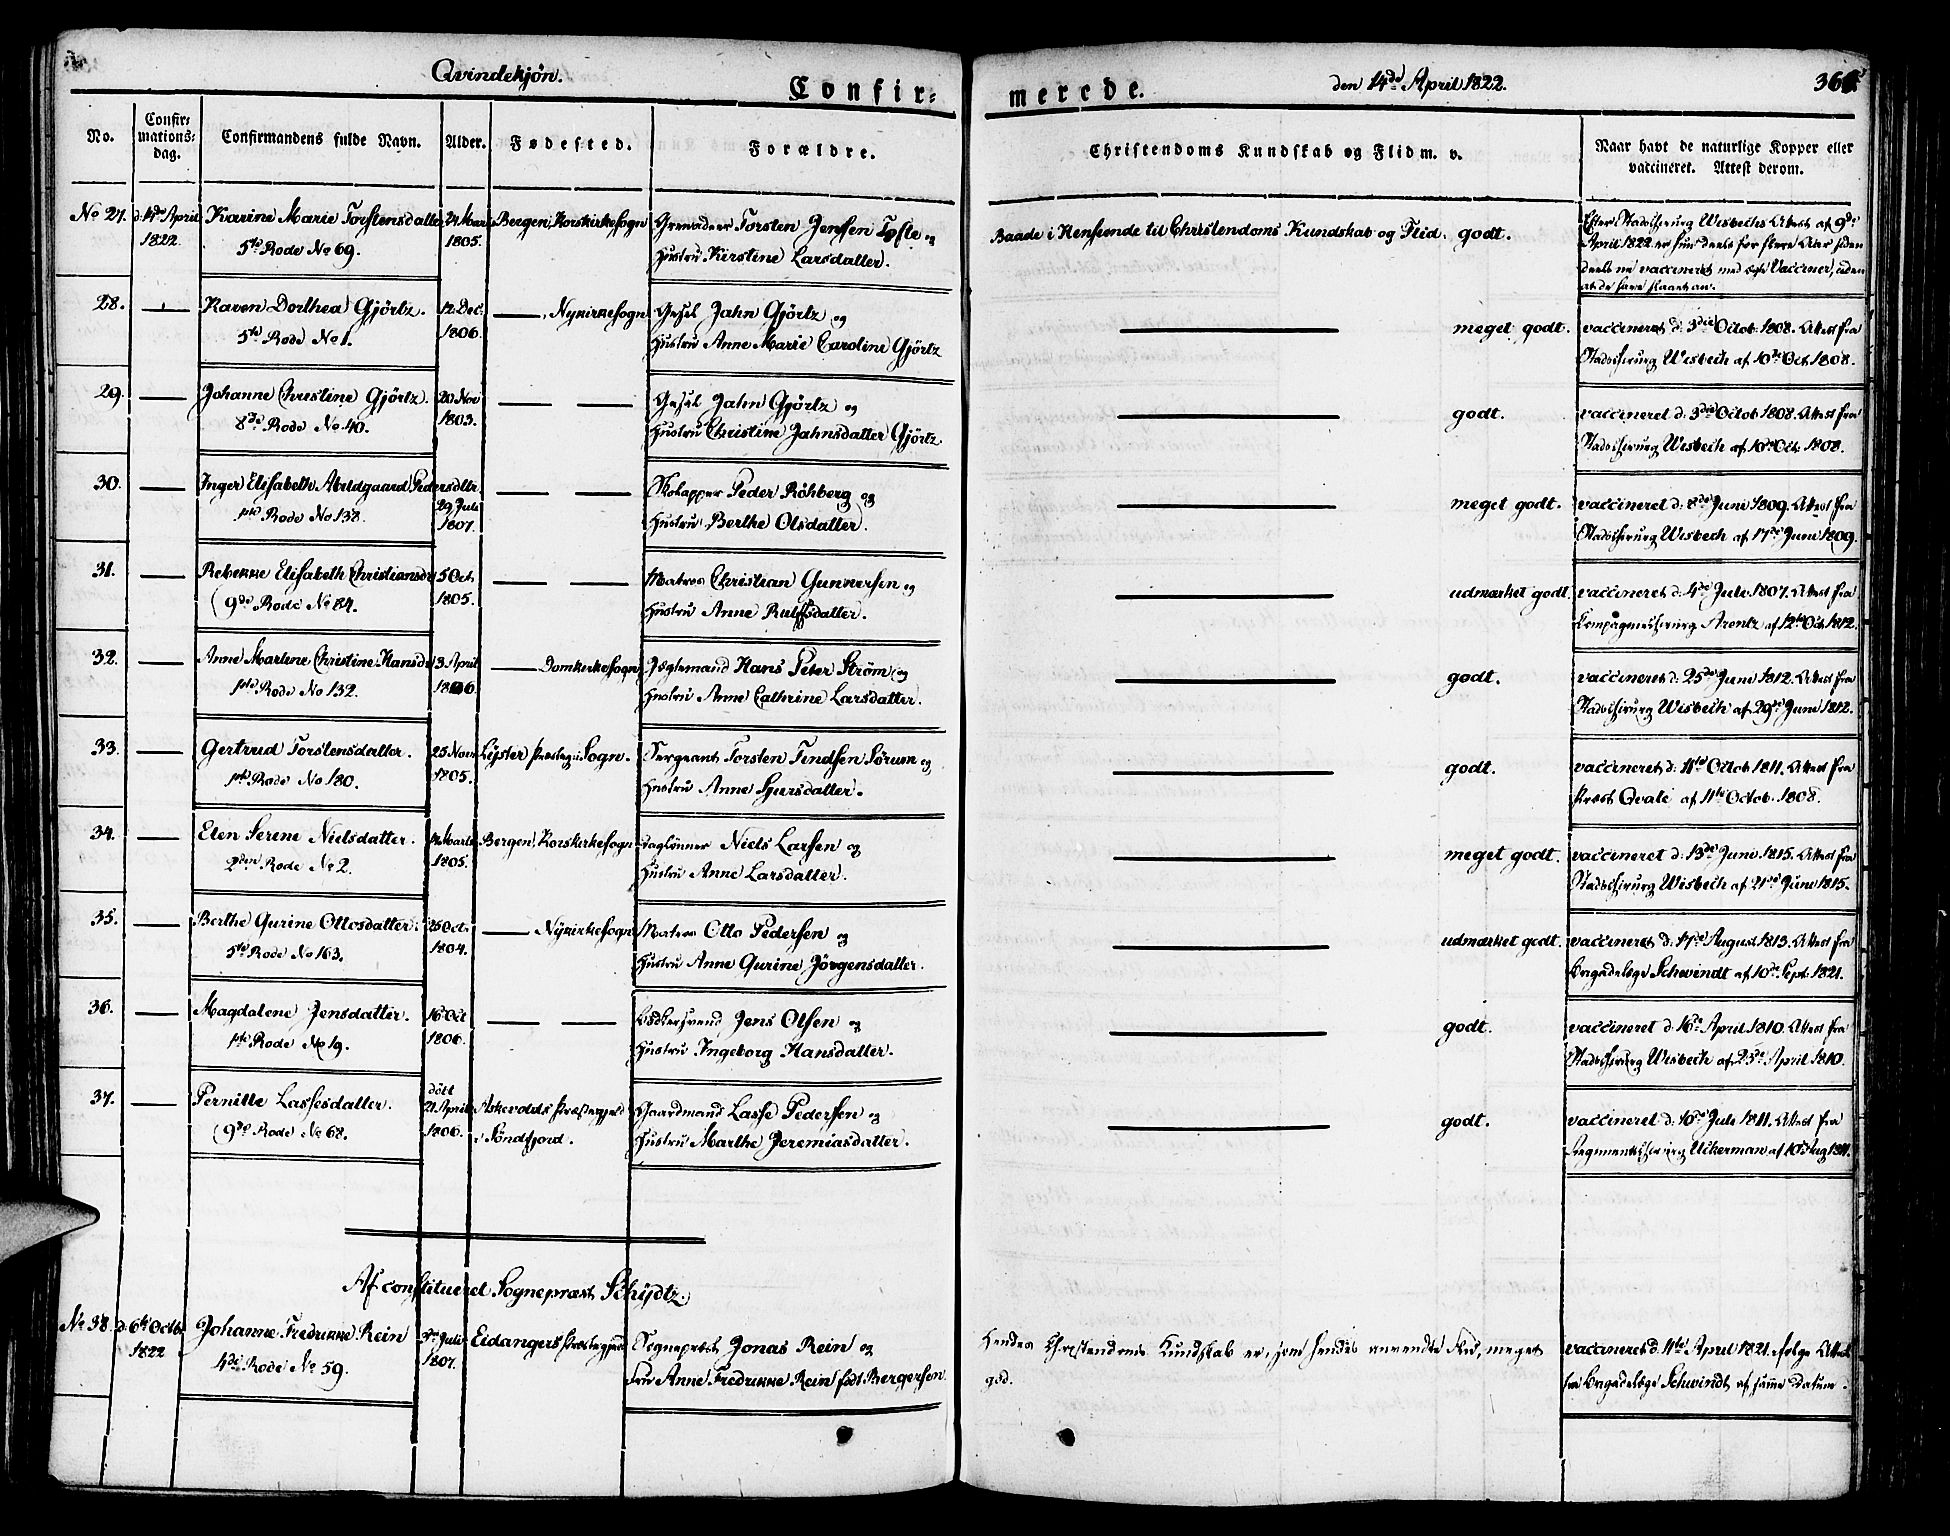 Qvindekjøn.
Confir=
merede.
den 14de April 1822.
No.
Confir=
mations=
dag.
Confirmandens fulde Navn.
Alder.
Fødested.
Forældre.
Christendoms Kundskab og Flid m. v.
Naar havt de naturlige Kopper eller
vaccineret. Attest derom.
No 27.
d: 14de April
1822.
Karine Marie Torstensdatter
5te Rode No 69.
1805.
Bergen, Korskirkesogn
Grenadeer Torsten Jenssen Tyste og
Hustru Kirstine Larsdatter.
Baade i Henseende til Christendoms Kundskab og Flid. godt.
Efter Stadschirurg Wisbechs Attest af 9de
April 1822 er hun deels for flere Aar siden
deels ny vaccineret med ægte Vacciner, uden
at de have slaaet an.
28.
Karen Dorthea Gjörtz.
5te Rode No 1.
12 Dec.
1806.
Nykirkesogn
Gesel Jahn Gjörtz og
Hustru Anne Marie Caroline Gjörtz
meget godt.
vaccineret d: 3die Octob. 1808. Attest fra
Stadschirurg Wisbech af 10de Oct. 1808.
29.
Johanne Christine Gjörtz.
8de Rode No 40.
20 Nov
1803.
Gesel Jahn Gjörtz og
Hustru Christine Jahnsdatter Gjörtz
godt.
vaccineret d: 3die Octob 1808. Attest fra
Stadschirurg Wisbech af 10de Oct. 1808.
30.
Inger Elisabeth Abildgaard Pedersdtr.
1ste Rode No 138.
29 Juli
1807.
Skolapper Peder Röhberg og
Hustru Berthe Olsdatter.
meget godt.
vaccineret d: 8de Juni 1809. Attest fra
Stadschirurg Wisbech af 17de Juni 1809.
31.
Rebekke Elisabeth Christiansdr
9de Rode No 84.
5 Oct
1805.
Matros Christian Gunnersen og
Hustru Anne Rulffsdatter.
udmærket godt.
vaccineret d: 4de Juli 1807. Attest fra
Compagniechirurg Arentz af 12te Oct. 1812.
32.
Anne Marlene Christine Hansdr
1ste Rode No 132.
3 April
1806.
Domkirkesogn
Hans Peter Ström og
Hustru Anne Cathrine Larsdatter.
godt.
vaccineret d: 25de Juni 1812. Attest fra
Stadschirurg Wisbech af 29de Juni 1812.
33.
Gertrud Torstensdatter.
1ste Rode No 180.
25 Novr
1805.
Lyster Præsteg: i Sogn.
Sergeant Torsten Tendsen Sörum og
Hustru Anne Sjursdatter.
godt.
vaccineret d: 11te Octob. 1811. Attest fra
Præst Qvale af 11te Octob. 1808.
34.
Elen Serine Nielsdatter.
2den Rode No 2.
1805.
Bergen, Korskirkesogn
Daglönner Niels Larsen og
Hustru Anne Larsdatter.
meget godt.
vaccineret d: 13de Juni 1815. Attest fra
Stadschirurg Wisbech af 21de Juni 1815.
35.
Berthe Gurine Ottosdatter.
5te Rode No 163.
25 Oct.
1804.
Nykirkesogn
Matros Otto Pedersen og
Hustru Anne Gurine Jörgensdatter.
udmærket godt.
vaccineret d: 17de August 1813. Attest fra
Brigadelæge Schwindt af 10de Sept. 1821.
36.
Magdalene Jensdatter.
1ste Rode No 19.
16 Oct
1806.
Jens Olsen og
Hustru Ingeborg Hansdatter.
godt.
vaccineret d: 16de April 1810. Attest fra
Stadschirurg Wisbech af 25de April 1810.
37.
Pernille Lassesdatter.
9de Rode No 68.
döbt
21 April
1806.
Askevolds Præstegjeld
i Söndfjord.
Gaardmand Lasse Pedersen og
Hustru Marthe Jeremiasdatter.
godt.
vaccineret d: 10de Juli 1811. Attest fra
Regimentschirurg Uckerman af 10de Aug 1811.
Af constitueret Sognepræst Schydtz.
No 38.
d: 6te Octb.
1822
Johanne Fredrikke Rein
4de Rode No 59.
3de Juli
1807.
Eidangers Præstegjeld
Sognepræst Jonas Rein og
Fru Anne Fredrikke Rein født Bergersen.
Hendes Christendoms Kundskab er, som hendes anvendte Flid, meget
god.
vaccineret d. 11te April 1821. ifølge Attest
fra Brigadelæge Schwindt af samme Datum.